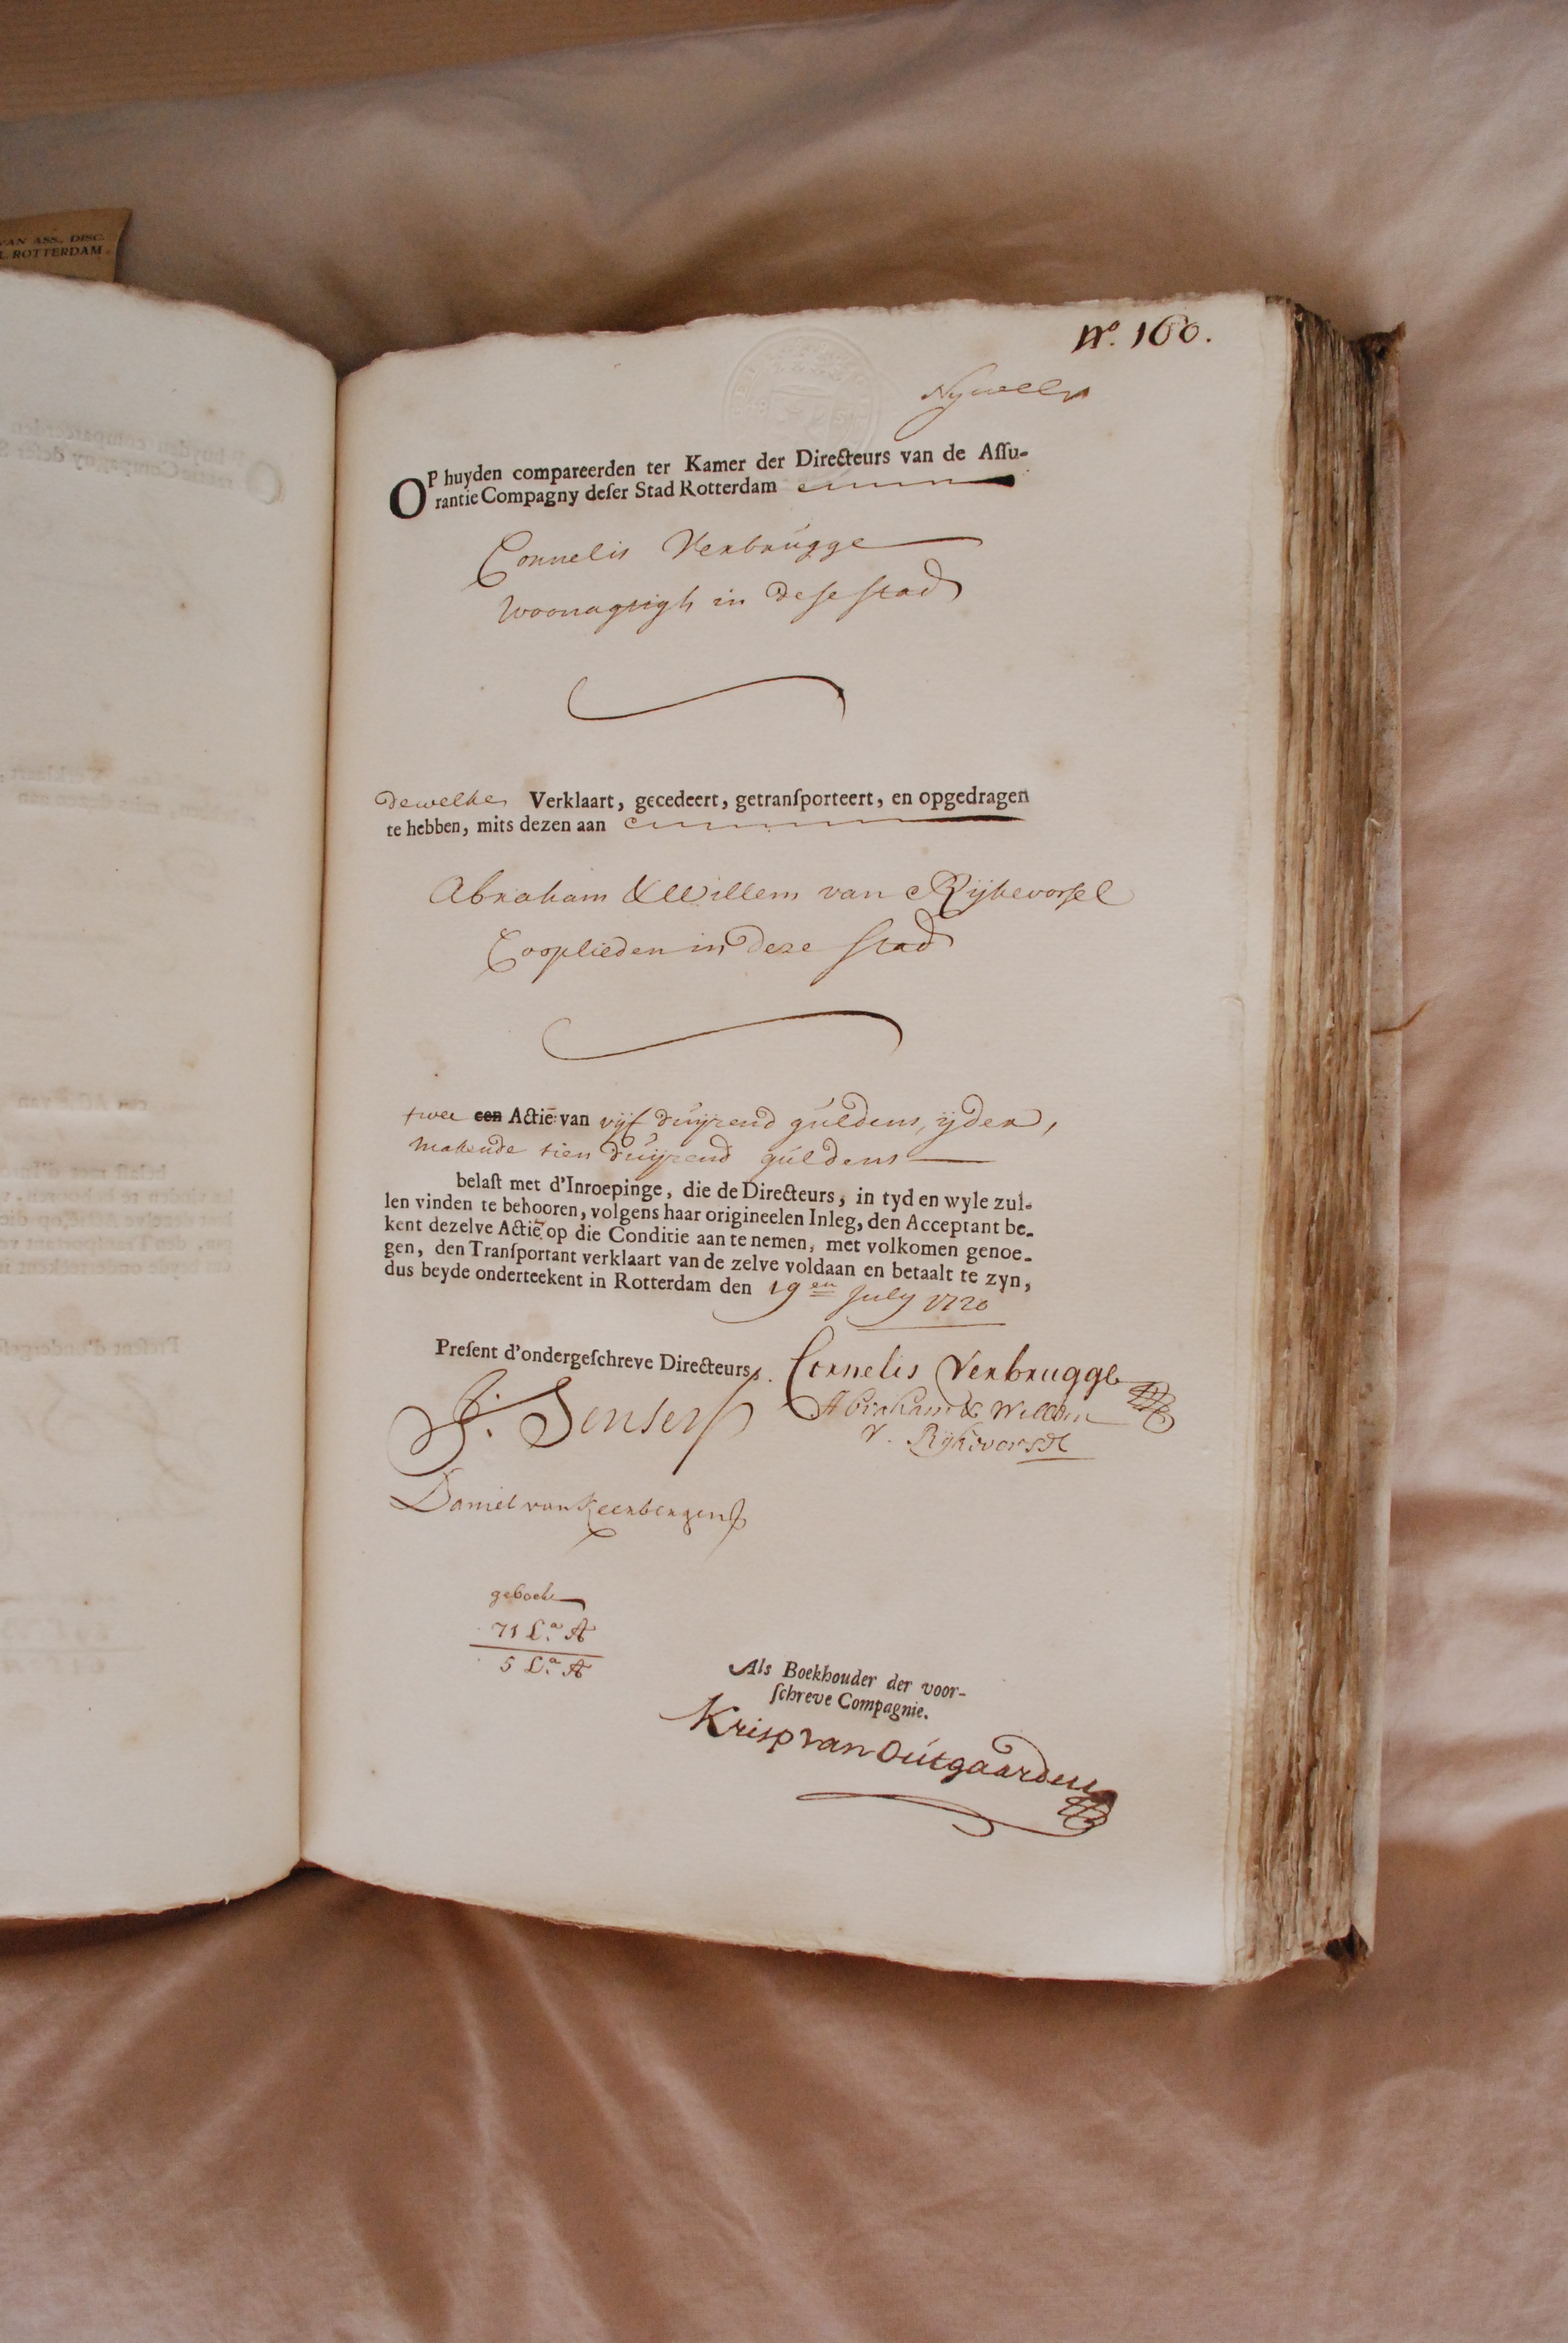 VAN ASS., DISC.
L. ROTTERDAM.
No. 160.
OP huyden compareerden ter Kamer der Directeurs van de Aſſu-
rantie Compagny deſer Stad Rotterdam
Cornelis Verbrugge
woonagtigh in dese stad
dewelke Verklaart, gecedeert, getranſporteert, en opgedragen
te hebben, mits dezen aan
Abraham & Willem van Rijkevorsel
Cooplieden in deze stad
twee een Actie van vijf duijzend guldens, ijder,
makende tien duijzend guldens
belaſt met d'Inroepinge, die de Directeurs, in tyd en wyle zul-
len vinden te behooren, volgens haar origineelen Inleg, den Acceptant be-
kent dezelve Actie op die Conditie aan te nemen, met volkomen genoe-
gen, den Tranſportant verklaart van de zelve voldaan en betaalt te zyn,
dus beyde onderteekent in Rotterdam den 19en July 1720
Preſent d'ondergeſchreve Directeurs.
Cornelis Verbrugge
Abraham & Willem
v. Rijkevorsel
J. Senserf
Daniel van Keerbergen
geboekt
71 La. A
5 La. A
Als Boekhouder der voor-
ſchreve Compagnie.
Krisp van Outgaarden